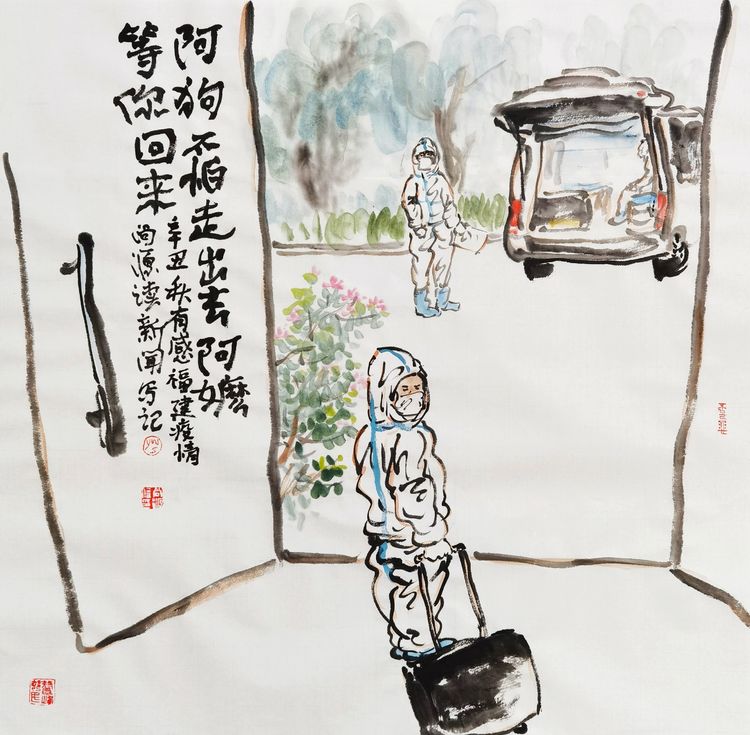 阿狗不怕走出去阿嬷
等你回来
辛丑秋有感福建疫情
读新闻写记